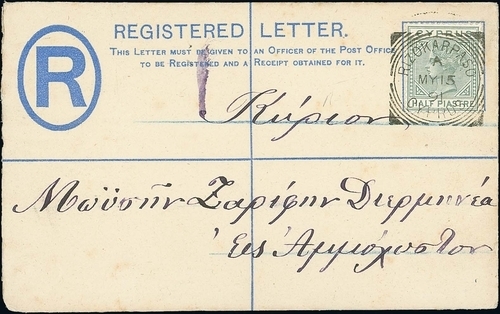 REGISTERED LETTER.
THIS LETTER MUST BE GIVEN TO AN OFFICER OF THE POST OFFICE
TO BE REGISTERED AND A RECEIPT OBTAINED FOR IT.
R
CYPRUS
RIZOKARPASO
A
MY 15
91
CYPRUS
HALF PIASTRE
Κύριον
Μωϋσῆν Ζαρίφην Διερμηνέα
Εἰς Ἀμμόχωστον